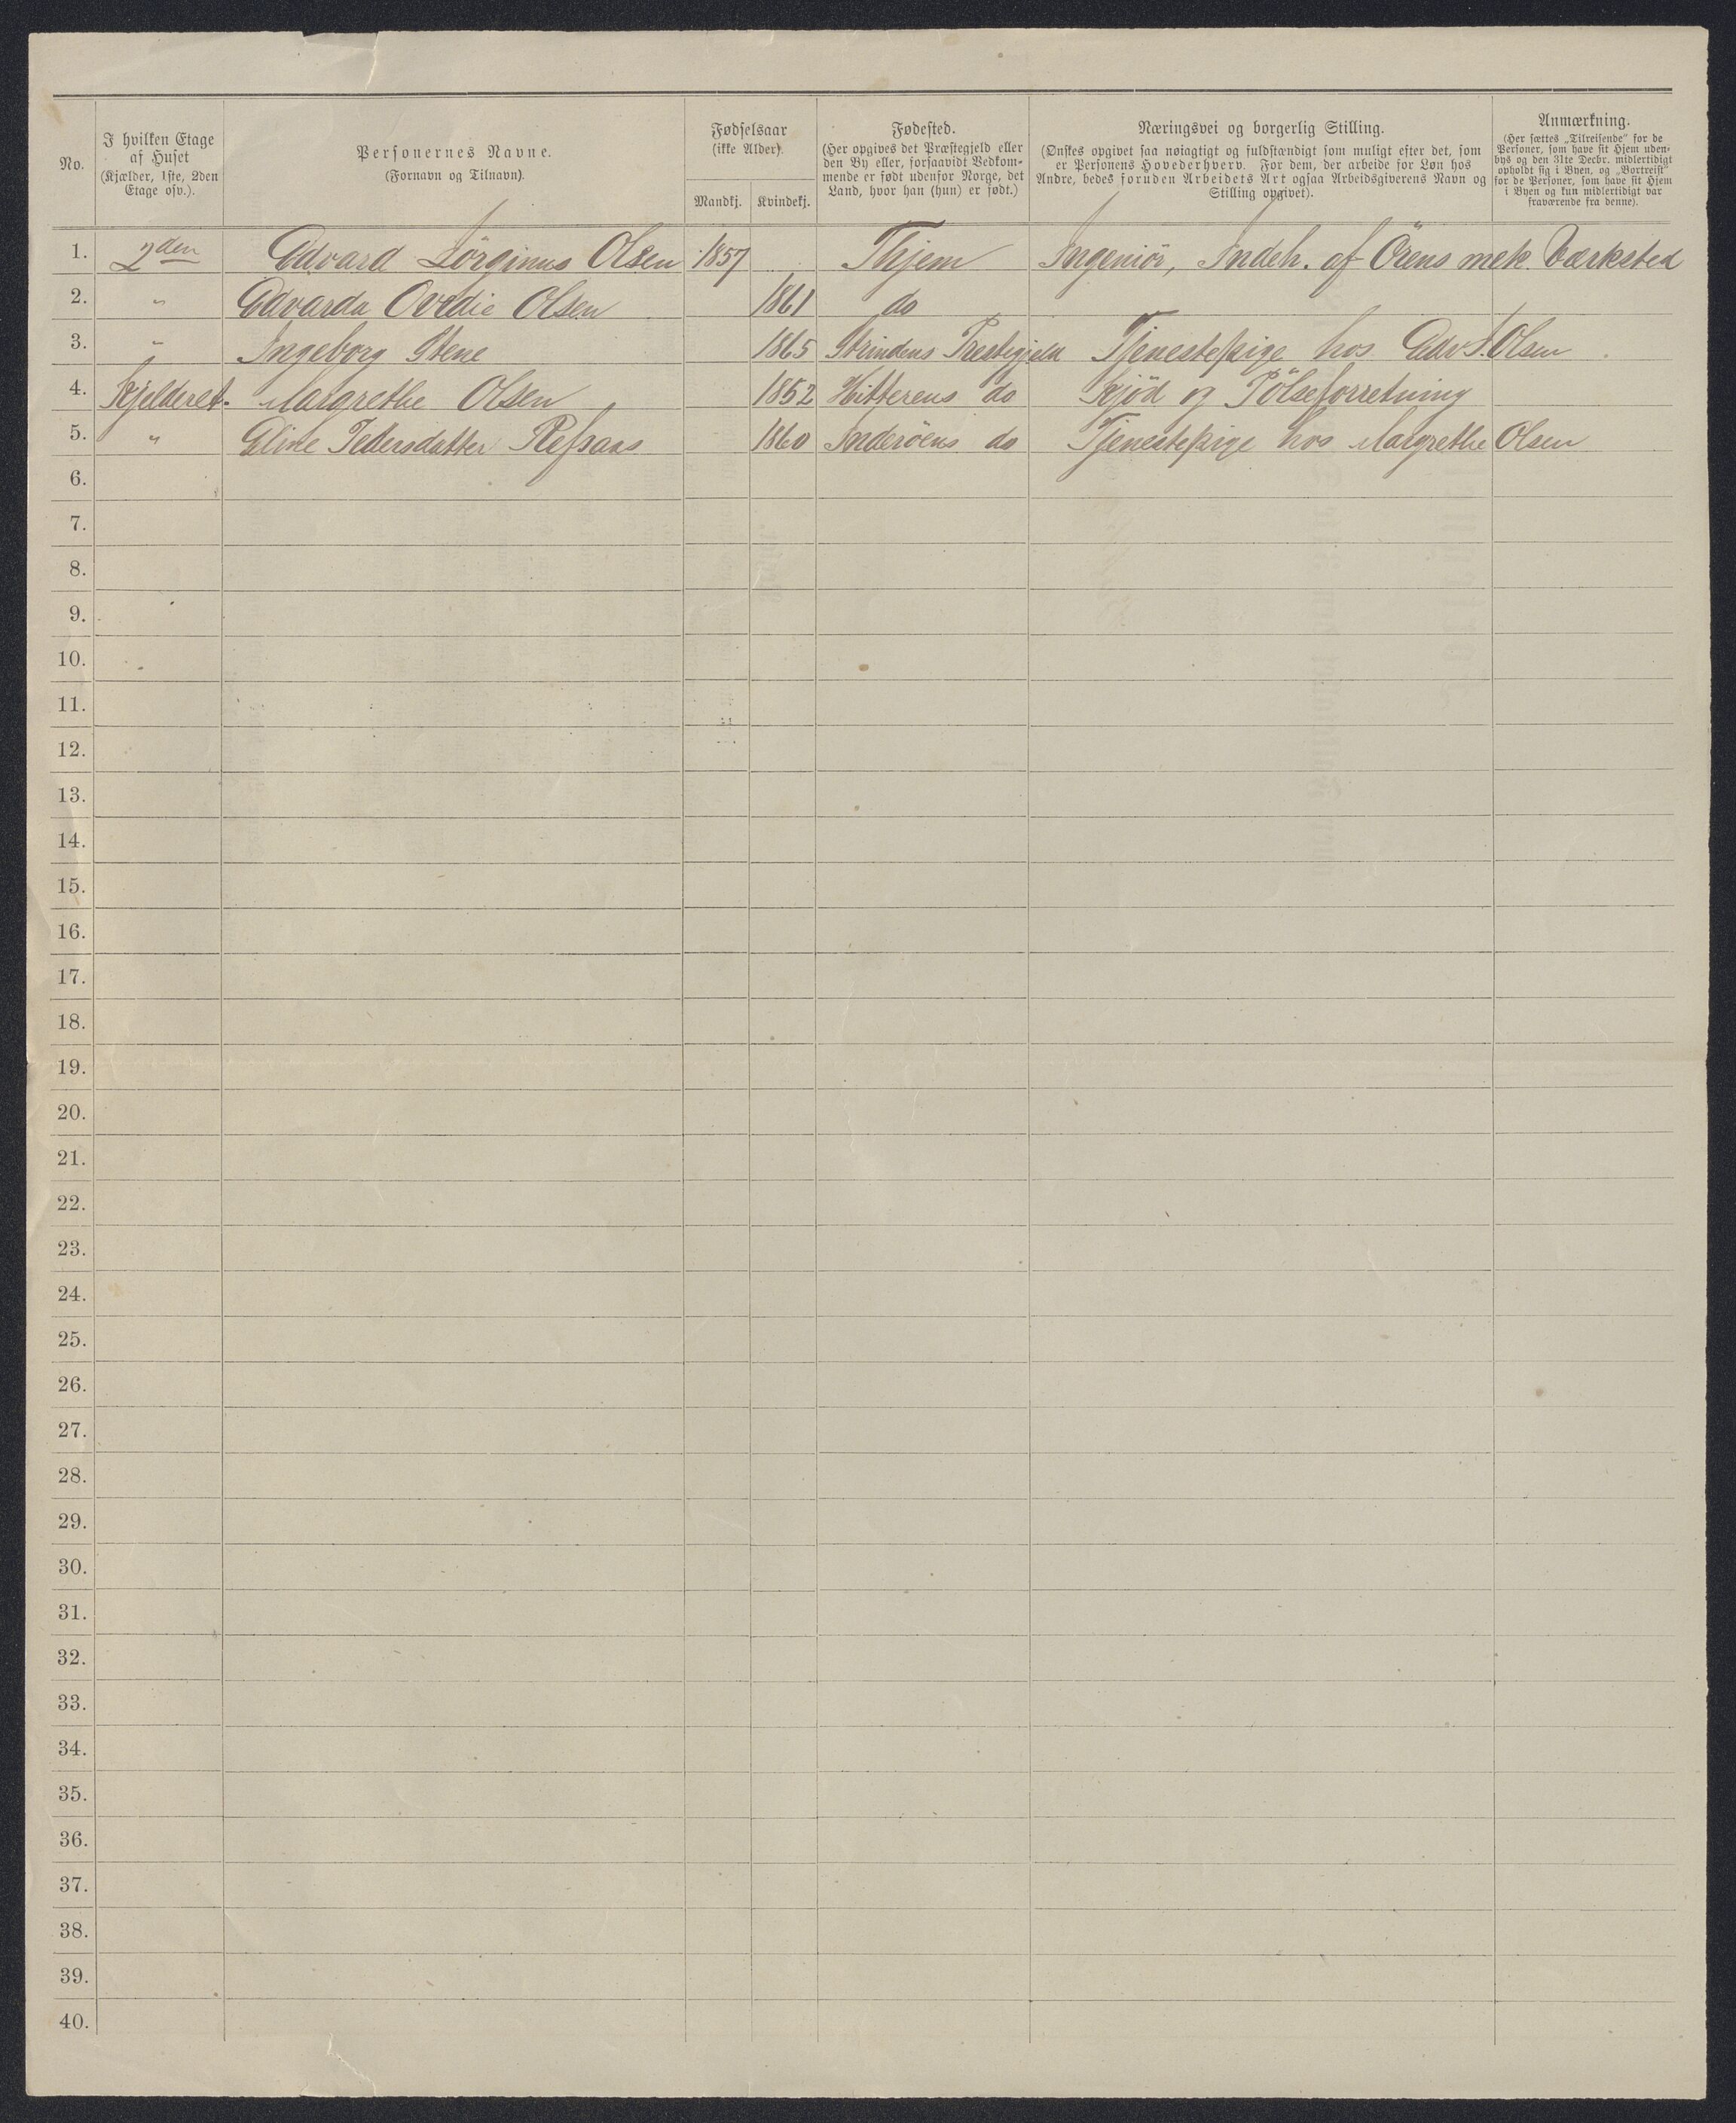 No.
I hvilken Etage
af Huset
(Kjælder, 1ste, 2den
Etage osv.).
Personernes Navne.
(Fornavn og Tilnavn).
Fødselsaar
(ikke Alder).
Mandkj. Kvindekj.
Fødested.
(Her opgives det Præstegjeld eller
den By eller, forsaavidt Vedkom-
mende er født udenfor Norge, det
Land, hvor han (hun) er født.)
Næringsvei og borgerlig Stilling.
(Ønskes opgivet saa nøiagtigt og fuldstændigt som muligt efter det, som
er Personens Hovederhverv. For dem, der arbeide for Løn hos
Andre, bedes foruden Arbeidets Art ogsaa Arbeidsgiverens Navn og
Stilling opgivet).
Anmærkning.
(Her sættes „Tilreisende" for de
Personer, som have sit Hjem uden-
bys og den 31te Decbr. midlertidigt
opholdt sig i Byen, og „Bortreist"
for de Personer, som have sit Hjem
i Byen og kun midlertidigt var
fraværende fra denne).
1. 2den Edvard Sørginus Olsen 1857 Thjem Ingeniör, Indeh. af Örens mek. Værksted
2. " Edvarda Ovedie Olsen 1861 do
3. " Ingeborg Stene 1865 Strindens Prestegjeld Tjenestepige hos Edv S. Olsen
4. Kjelderet. Margrethe Olsen 1852 Hitterens do Kjöd og Pölseforretning
5. " Eline Pedersdatter Refsaas 1860 Inderöens do Tjenestepige hos Margrethe Olsen
6.
7.
8.
9.
10.
11.
12.
13.
14.
15.
16.
17.
18.
19.
20.
21.
22.
23.
24.
25.
26.
27.
28.
29.
30.
31.
32.
33.
34.
35.
36.
37.
38.
39.
40.